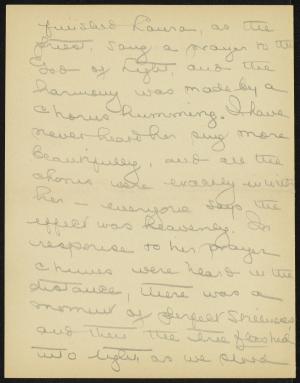 finished Laura, as the
priest, sang a prayer to the
God of Light, and the
harmony was made by a
chorus humming. I have
never heard her sing more
beautifully, and all the
chorus were exactly with
her – everyone says the
effect was heavenly. In
response to her prayer
chimes were heard in the
distance, there was a
moment of perfect stillness
and then the tree flashed
into light, as we stood